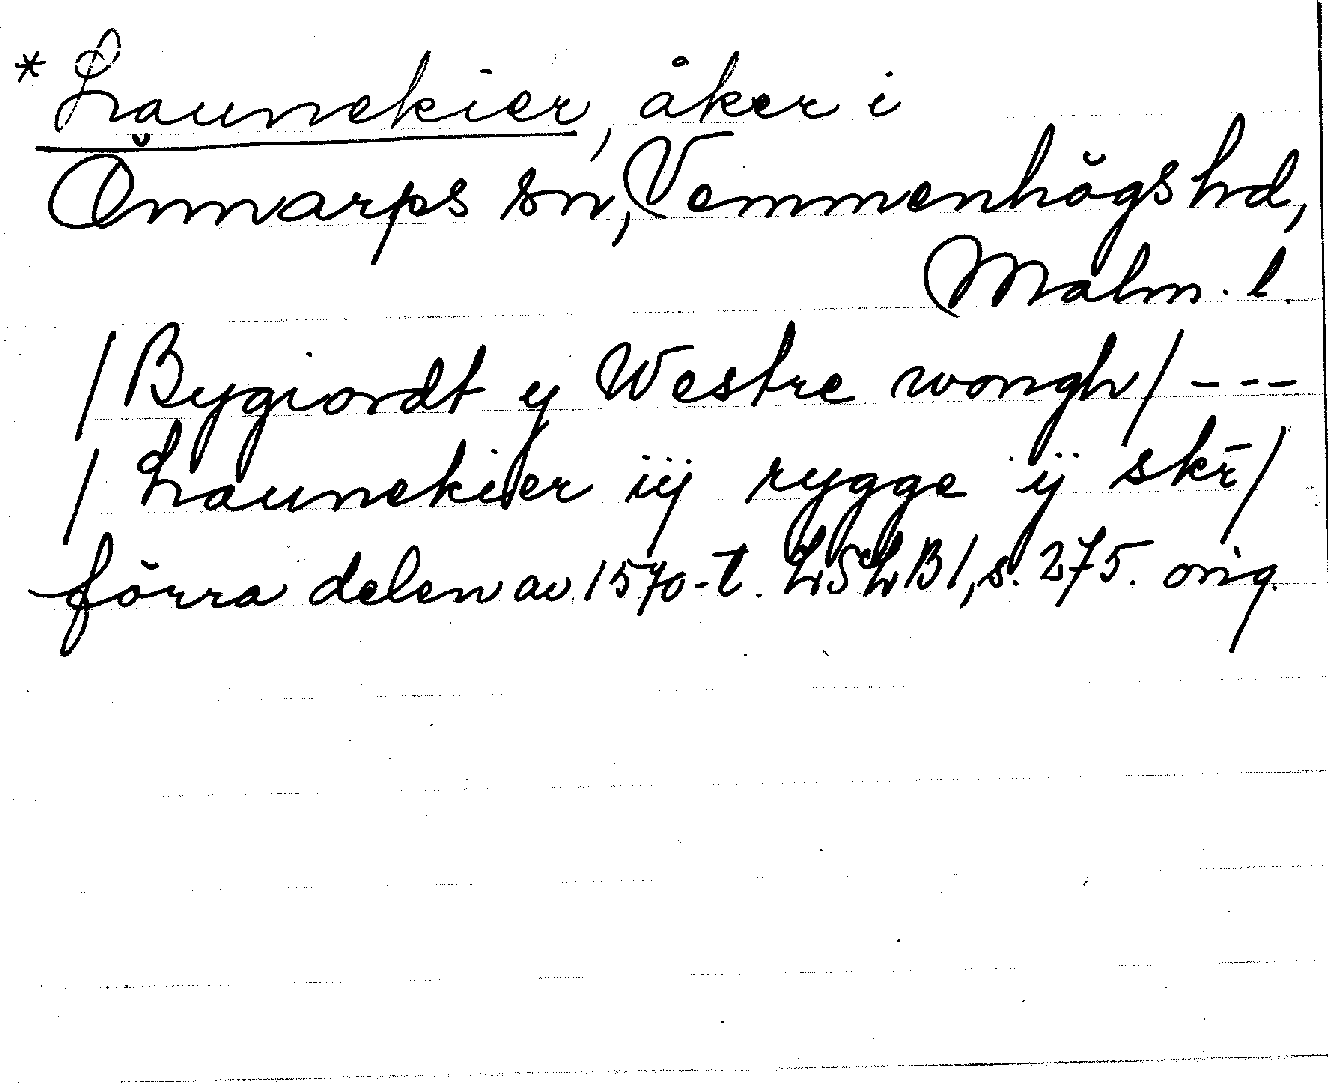 * Launekier, åker i
Önnarps sn, Vemmenhögs hd,
Malm. l.
/ Bygiordt y Westre wongh / ---
/ Launekier iij rygge ij skr̄ /
förra delen av 1570-t. LSLB 1, s. 275. orig.